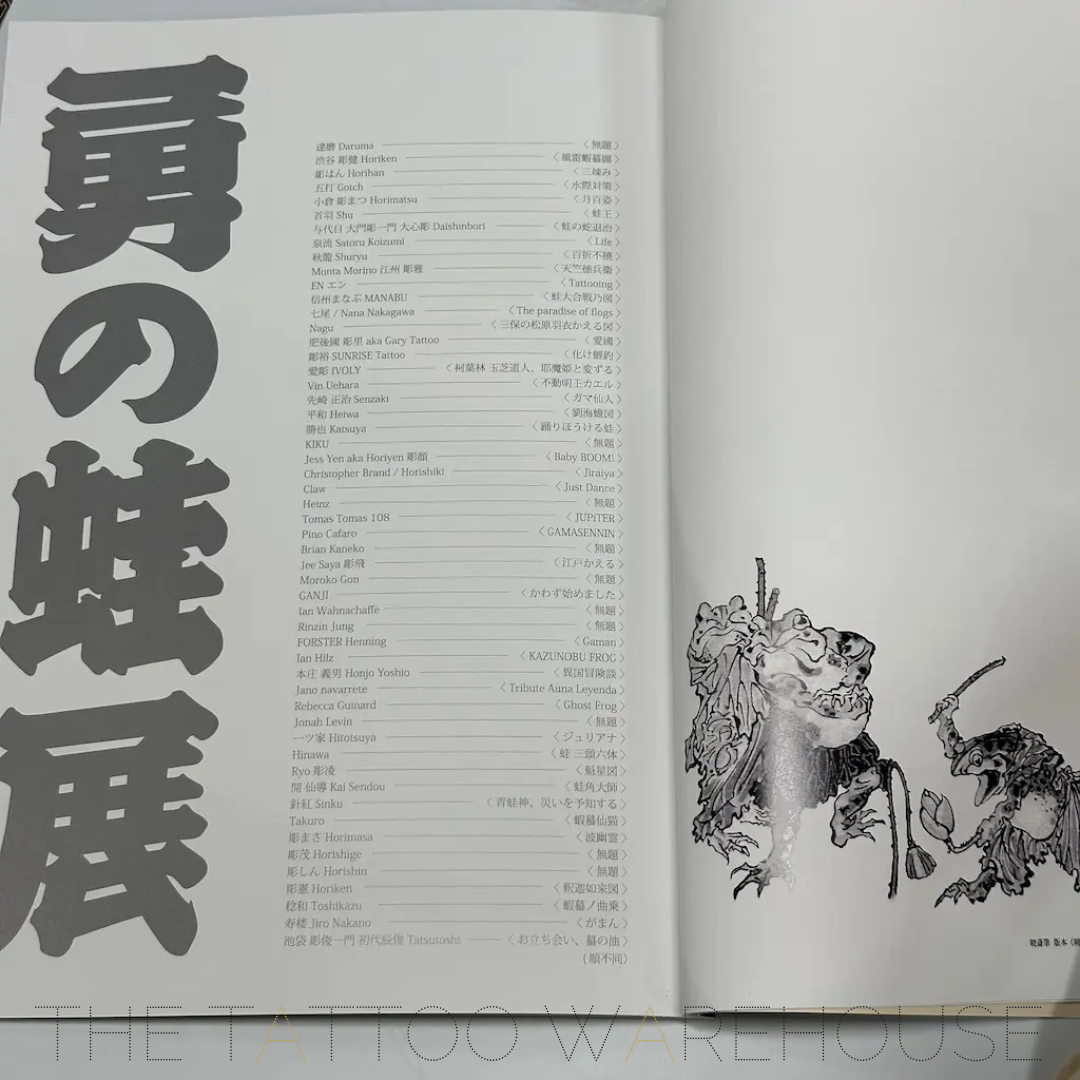 勇の蛙展
達磨 Daruma 〈 無題 〉
渋谷 彫健 Horiken 〈 風雷蝦蟇圖 〉
彫はん Horihan 〈 三竦み 〉
五打 Gotch 〈 水際対策 〉
小倉 彫まつ Horimatsu 〈 月百姿 〉
首羽 Shu 〈 蛙王 〉
与代目 大門彫一門 大心彫 Daishinbori 〈 蛙の蛇退治 〉
泉流 Satoru Koizumi 〈 Life 〉
秋龍 Shuryu 〈 百折不撓 〉
Monta Morino 江州 彫雅 〈 天竺徳兵衛 〉
EN エン 〈 Tattooing 〉
信州まなぶ MANABU 〈 蛙大合戦乃図 〉
七尾 / Nana Nakagawa 〈 The paradise of flogs 〉
Nagu 〈 三保の松原羽衣かえる図 〉
肥後國 彫里 aka Gary Tattoo 〈 愛國 〉
彫裕 SUNRISE Tattoo 〈 化け解釣 〉
愛彫 IVOLY 〈 柯葉林 玉芝道人、耶魔姫と変ずる 〉
Vin Uehara 〈 不動明王カエル 〉
先崎 正治 Senzaki 〈 ガマ仙人 〉
平和 Heiwa 〈 劉海蟾図 〉
勝也 Katsuya 〈 踊りほうける蛙 〉
KIKU 〈 無題 〉
Jess Yen aka Horiyen 彫顔 〈 Baby BOOM! 〉
Christopher Brand / Horishiki 〈 Jiraiya 〉
Claw 〈 Just Dance 〉
Heinz 〈 無題 〉
Tomas Tomas 108 〈 JUPiTER 〉
Pino Cafaro 〈 GAMASENNIN 〉
Brian Kaneko 〈 無題 〉
Jee Saya 彫飛 〈 江戸かえる 〉
Moroko Gon 〈 無題 〉
GANJI 〈 かわず始めました 〉
Ian Wahnachaffe 〈 無題 〉
Rinzin Jung 〈 無題 〉
FORSTER Henning 〈 Gaman 〉
Ian Hilz 〈 KAZUNOBU FROG 〉
本庄 義男 Honjo Yoshio 〈 異国冒険談 〉
Jano navarrete 〈 Tribute Auna Leyenda 〉
Rebecca Guinard 〈 Ghost Frog 〉
Jonah Levin 〈 無題 〉
一ツ家 Hitotsuya 〈 ジュリアナ 〉
Hinawa 〈 蛙 三頭六体 〉
Ryo 彫凌 〈 魁星図 〉
開 仙導 Kai Sendou 〈 蛙角大師 〉
針紅 Sinku 〈 青蛙神、災いを予知する 〉
Takuro 〈 蝦蟇仙猫 〉
彫まさ Horimasa 〈 波幽霊 〉
彫茂 Horishige 〈 無題 〉
彫しん Horishin 〈 無題 〉
彫憲 Horiken 〈 釈迦如来図 〉
稔和 Toshikazu 〈 蝦蟇ノ曲乗 〉
寿楼 Jiro Nakano 〈 がまん 〉
池袋 彫俊一門 初代辰俊 Tatsutoshi 〈 お立ち会い、蟇の油 〉
( 順不同)
暁斎筆 版本
THE TATTOO WAREHOUSE